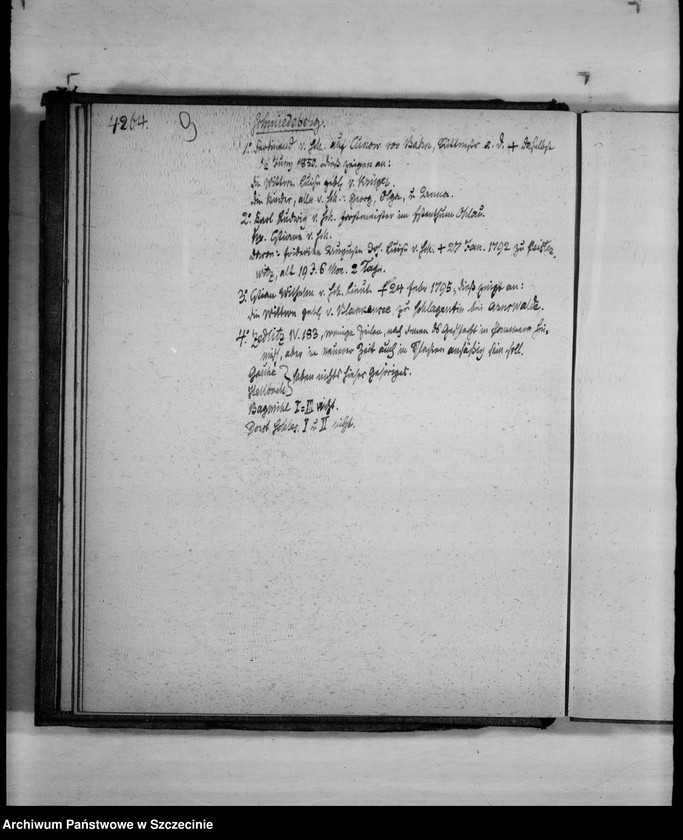 4264. 9
Schmiedeberg.
1.° Ferdinand v. Sch. auf Cunow vor Bahn, Rittmstr a. D. + daselbst
Juny 1830. Dieß zeigen an:
die Wittwe Luise geb. v. Krüger.
die Kinder, alle v. Sch.: Georg, Olga, u Anna.
2.° Karl Ludwig v. Sch. Forstmeister im Fstenthum Ohlau.
Ux. v. Sch.
Davon: Friderike Auguste Luise v. Sch. + 27 Jan. 1792 zu
witz, alt 19 J. 6 Mon. 2 Tage.
3.° Wilhelm v. Sch. Lieut. + 24 Febr 1795, dieß zeigt an:
die Wittwe geb. v. Blankensee zu Schlagentin bei Arnswalde.
4.° Zedlitz IV. 183, wenige Zeilen, nach denen das Geschlecht in Pommern hei-
misch, aber in neuerer Zeit auch in Schlesien ansäßig sein soll.
Gauhe } haben nichts hieher Gehöriges.
Hellbach }
Bagmihl I-III nicht.
Dorst Schles. I u II nicht.
Archiwum Państwowe w Szczecinie